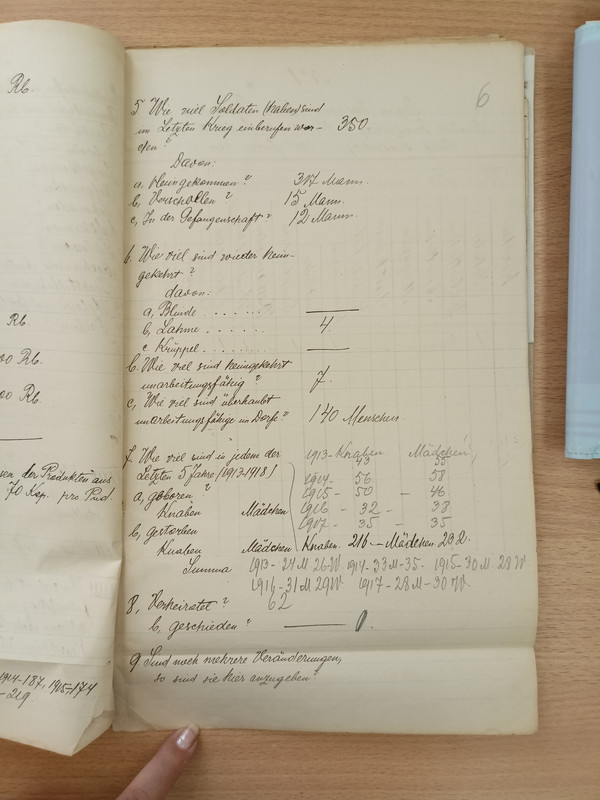 Rb.
Rb.
00 Rb.
00 Rb.
sen der Produkten aus
70 Kop. pro Pud
1914-187, 1915-174
-219
6
5 Wie viel Soldaten (haben) sind
im Letzten Krieg einberufen wor- 350
den?
Davon:
a, Heimgekommen? 317 Mann.
b, Verschollen? 15 Mann.
c, In der Gefangenschaft? 12 Mann.
6. Wie viel sind wieder heim-
gekehrt?
davon:
a, Blinde . . . . . . —
b, Lahme . . . . . 4
c Krüppel . . . . . . —
b. Wie viel sind heimgekehrt
unarbeitungsfähig? 7.
c, Wie viel sind überhaubt
unarbeitungsfähige im Dorfe? 140 Menschen
7. Wie viel sind in jedem der 1913- Knaben Mädchen,
43 55
Letzten 5 Jahre (1913-1918) 1914- 56 58
a, geboren? 1915- 50 - 46
Knaben Mädchen 1916 - 32 - 38
b, gestorben 1917- 35 - 35
Knaben Mädchen Knaben. 216 - Mädchen. 232.
Summa 1913- 24 M 26 W. 1914- 33 M-35- 1915-30 M 28 W
1916-31 M 29 W 1917-28 M-30 W.
8, Verheiratet? 62
b, geschieden? — 0.
9 Sind noch mehrere Veränderungen,
so sind sie hier anzugeben?